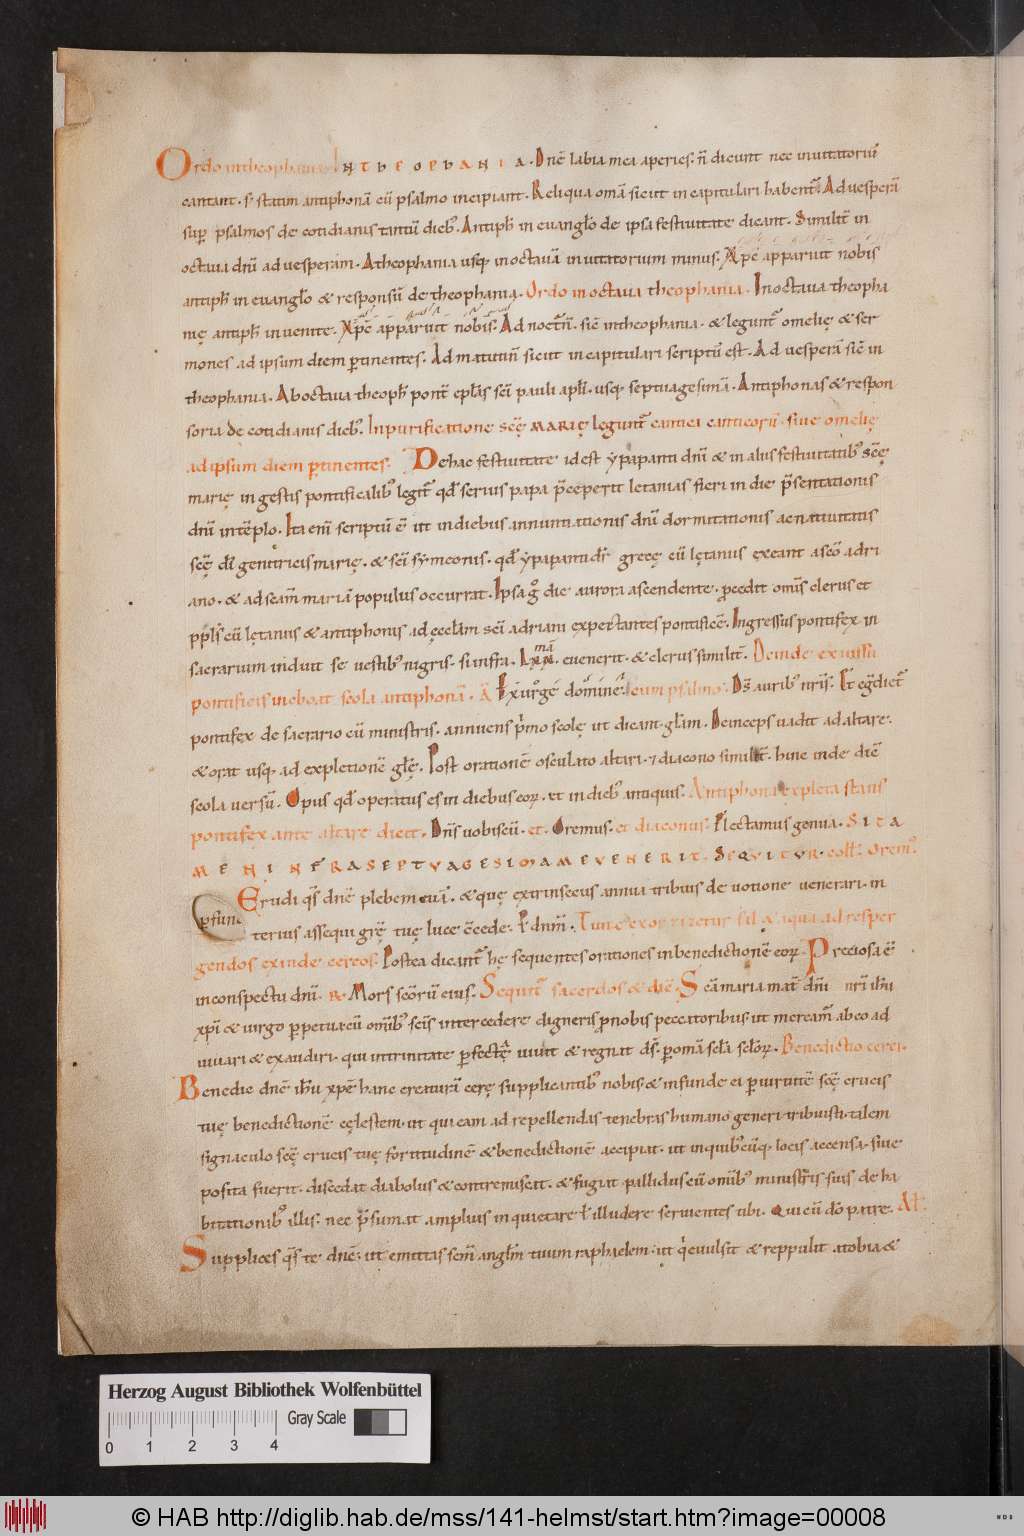 Ordo in theophania. IN THEOPHANIA. Dn̄e labia mea aperies. n̄ dicunt nec inuitatoriū
cantant. s; statim antiphonā cū psalmo incipiant. Reliqua om̄a sicut in capitulari habent̄. Ad vesperā
sup̄ psalmos de cotidianis tantū dieb;. Antiph̄ in euangl̄o de ipsa festiuitate dicant. Similit̄ in
octaua dnī ad vesperam. A theophania usq; in octauā inuitatorium minus. Xpē apparuit nobis
antiph̄ in euangl̄o & responsū de theophania. Ordo in octaua theophanię. In octaua theopha
nię antiph̄ inuenite. Xpē apparuit nobis. Ad noctn̄. sic̄ in theophania. & legunt̄ omelię & ser
mones ad ipsum diem p̄tinentes. Ad matutin̄ sicut in capitulari scriptū est. Ad vesperā sic̄ in
theophania. Ab octaua theoph̄ pont̄ epl̄as sc̄i pauli apl̄i. usq; septuagesimā. Antiphonas & respon
soria de cotidianis dieb;. In purificatione sc̄ę MARIĘ legunt̄ cantici canticorū. siue omelię
ad ipsum diem p̄tinentes. De hac festiuitate id est ypapanti dn̄i & in aliis festiuitatib; sc̄ę
marię in gestis pontificalib; legit̄ qd̄ serius papa p̄ceperit letanias fieri in die p̄sentationis
dn̄i in tēplo. Ita enī scriptū ē ut in diebus annuntiationis dn̄i dormitationis ac natiuitatis
sc̄ę dī genitricis marię. & sc̄i symeonis. qd̄ ypapanti dr̄ grecę cū lętaniis exeant a sc̄o adri
ano. & ad scam̄ mariā populus occurrat. Ipsa g̊ die aurora ascendente. p̄cedit om̄is clerus et
ppl̄s cū lętaniis & antiphonis ad ęcclam̄ sc̄i adriani expectantes pontificē. Ingressus pontifex in
sacrarium induit se uestib; nigris. si infra. LXX.mā euenerit. & clerus similit̄. Deinde ex iussu
pontificis incboat scola antiphonā. A Exurge domine. cum psalmo. Ds̄ aurib; nr̄is. Et egredit̄
pontifex de sacrario cū ministris. annuens p̄mo scolę ut dicant gl̄am. Deinceps uadit ad altare.
& orat usq; ad expletionē gl̄ę. Post orationē osculato altari. & diacono similit̄. hinc inde dic̄
scola versū. Opus qd̄ operatus es in diebus eor;. et in dieb; antiquis. Antiphona expleta stans
pontifex ante altare dicit. Dn̄s uobiscū. et. Oremus. et diaconus. Flectamus genua. SI TA
MEN INFRA SEPTVAGESIMAM EVENERIT. SEQVITVR. coll̄. Orem;.
Erudi qs̄ dn̄e plebem tuā. & quę extrinsecus annua tribuis deuotione uenerari. in
terius assequi gr̄ę tuę luce c̄cede. P̄ dnm̄.
gendos exinde cereos. Postea dicant̄ hę sequentes orationes in benedictionē eor;. Preciosa ē
in conspectu dn̄i. R. Mors sc̄orū eius. Sequit̄ sacerdos & dic̄. Sc̄a maria mat̄ dn̄i nr̄i ih̄u
xp̄i & uirgo p̄petua cū omīb; sc̄is intercedere digneris p̄ nobis peccatoribus. ut meream̄ ab eo ad
iuuari & exaudiri. qui in trinitate p̄fecte uiuit & regnat ds̄. p̄ om̄a scl̄a scl̄or;. Benedictio cerei.
Benedic dn̄e ih̄u xp̄e hanc creaturā cerę supplicantib; nobis & infunde ei p̄ uirtutē sc̄ę crucis
tuę benedictionē cęlestem. ut qui eam ad repellendas tenebras humano generi tribuisti. talem
signaculo sc̄ę crucis tuę fortitudinē & benedictionē accipiat. ut in quib;cūq; locis accensa. siue
posita fuerit. discedat diabolus & contremiscat. & fugiat pallidus cū omīb; ministris suis de ha
bitationib; illis. nec p̄sumat amplius inquietare ł illudere seruientes tibi. Qui cū dō patre. Al̄.
Supplices qs̄ te dn̄e. ut emittas sc̄m angl̄m tuum raphaelem. ut q̄ euulsit & reppulit a tobia &
Herzog August Bibliothek Wolfenbüttel
Gray Scale
0 1 2 3 4
© HAB http://diglib.hab.de/mss/141-helmst/start.htm?image=00008